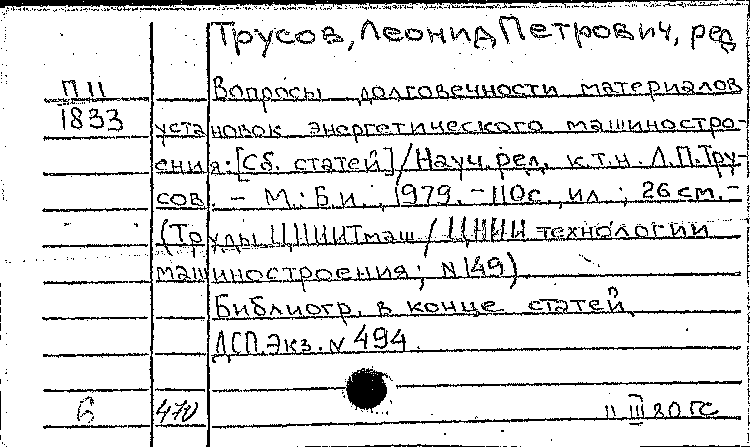 Трусов, Леонид Петрович, ред
П 11
1833
Вопросы долговечности материалов
установок энергетического машиностро-
ения: [Сб. статей] / Науч. ред. к.т.н. Л.П. Тру-
сов. - М.: Б.и., 1979. - 110с., ил.; 26 см. -
(Труды ЦНИИТмаш / ЦНИИ технологии
машиностроения; N 149)
Библиогр. в конце статей
ДСП. Экз. N 494.
6 470 11 III 80 ГС